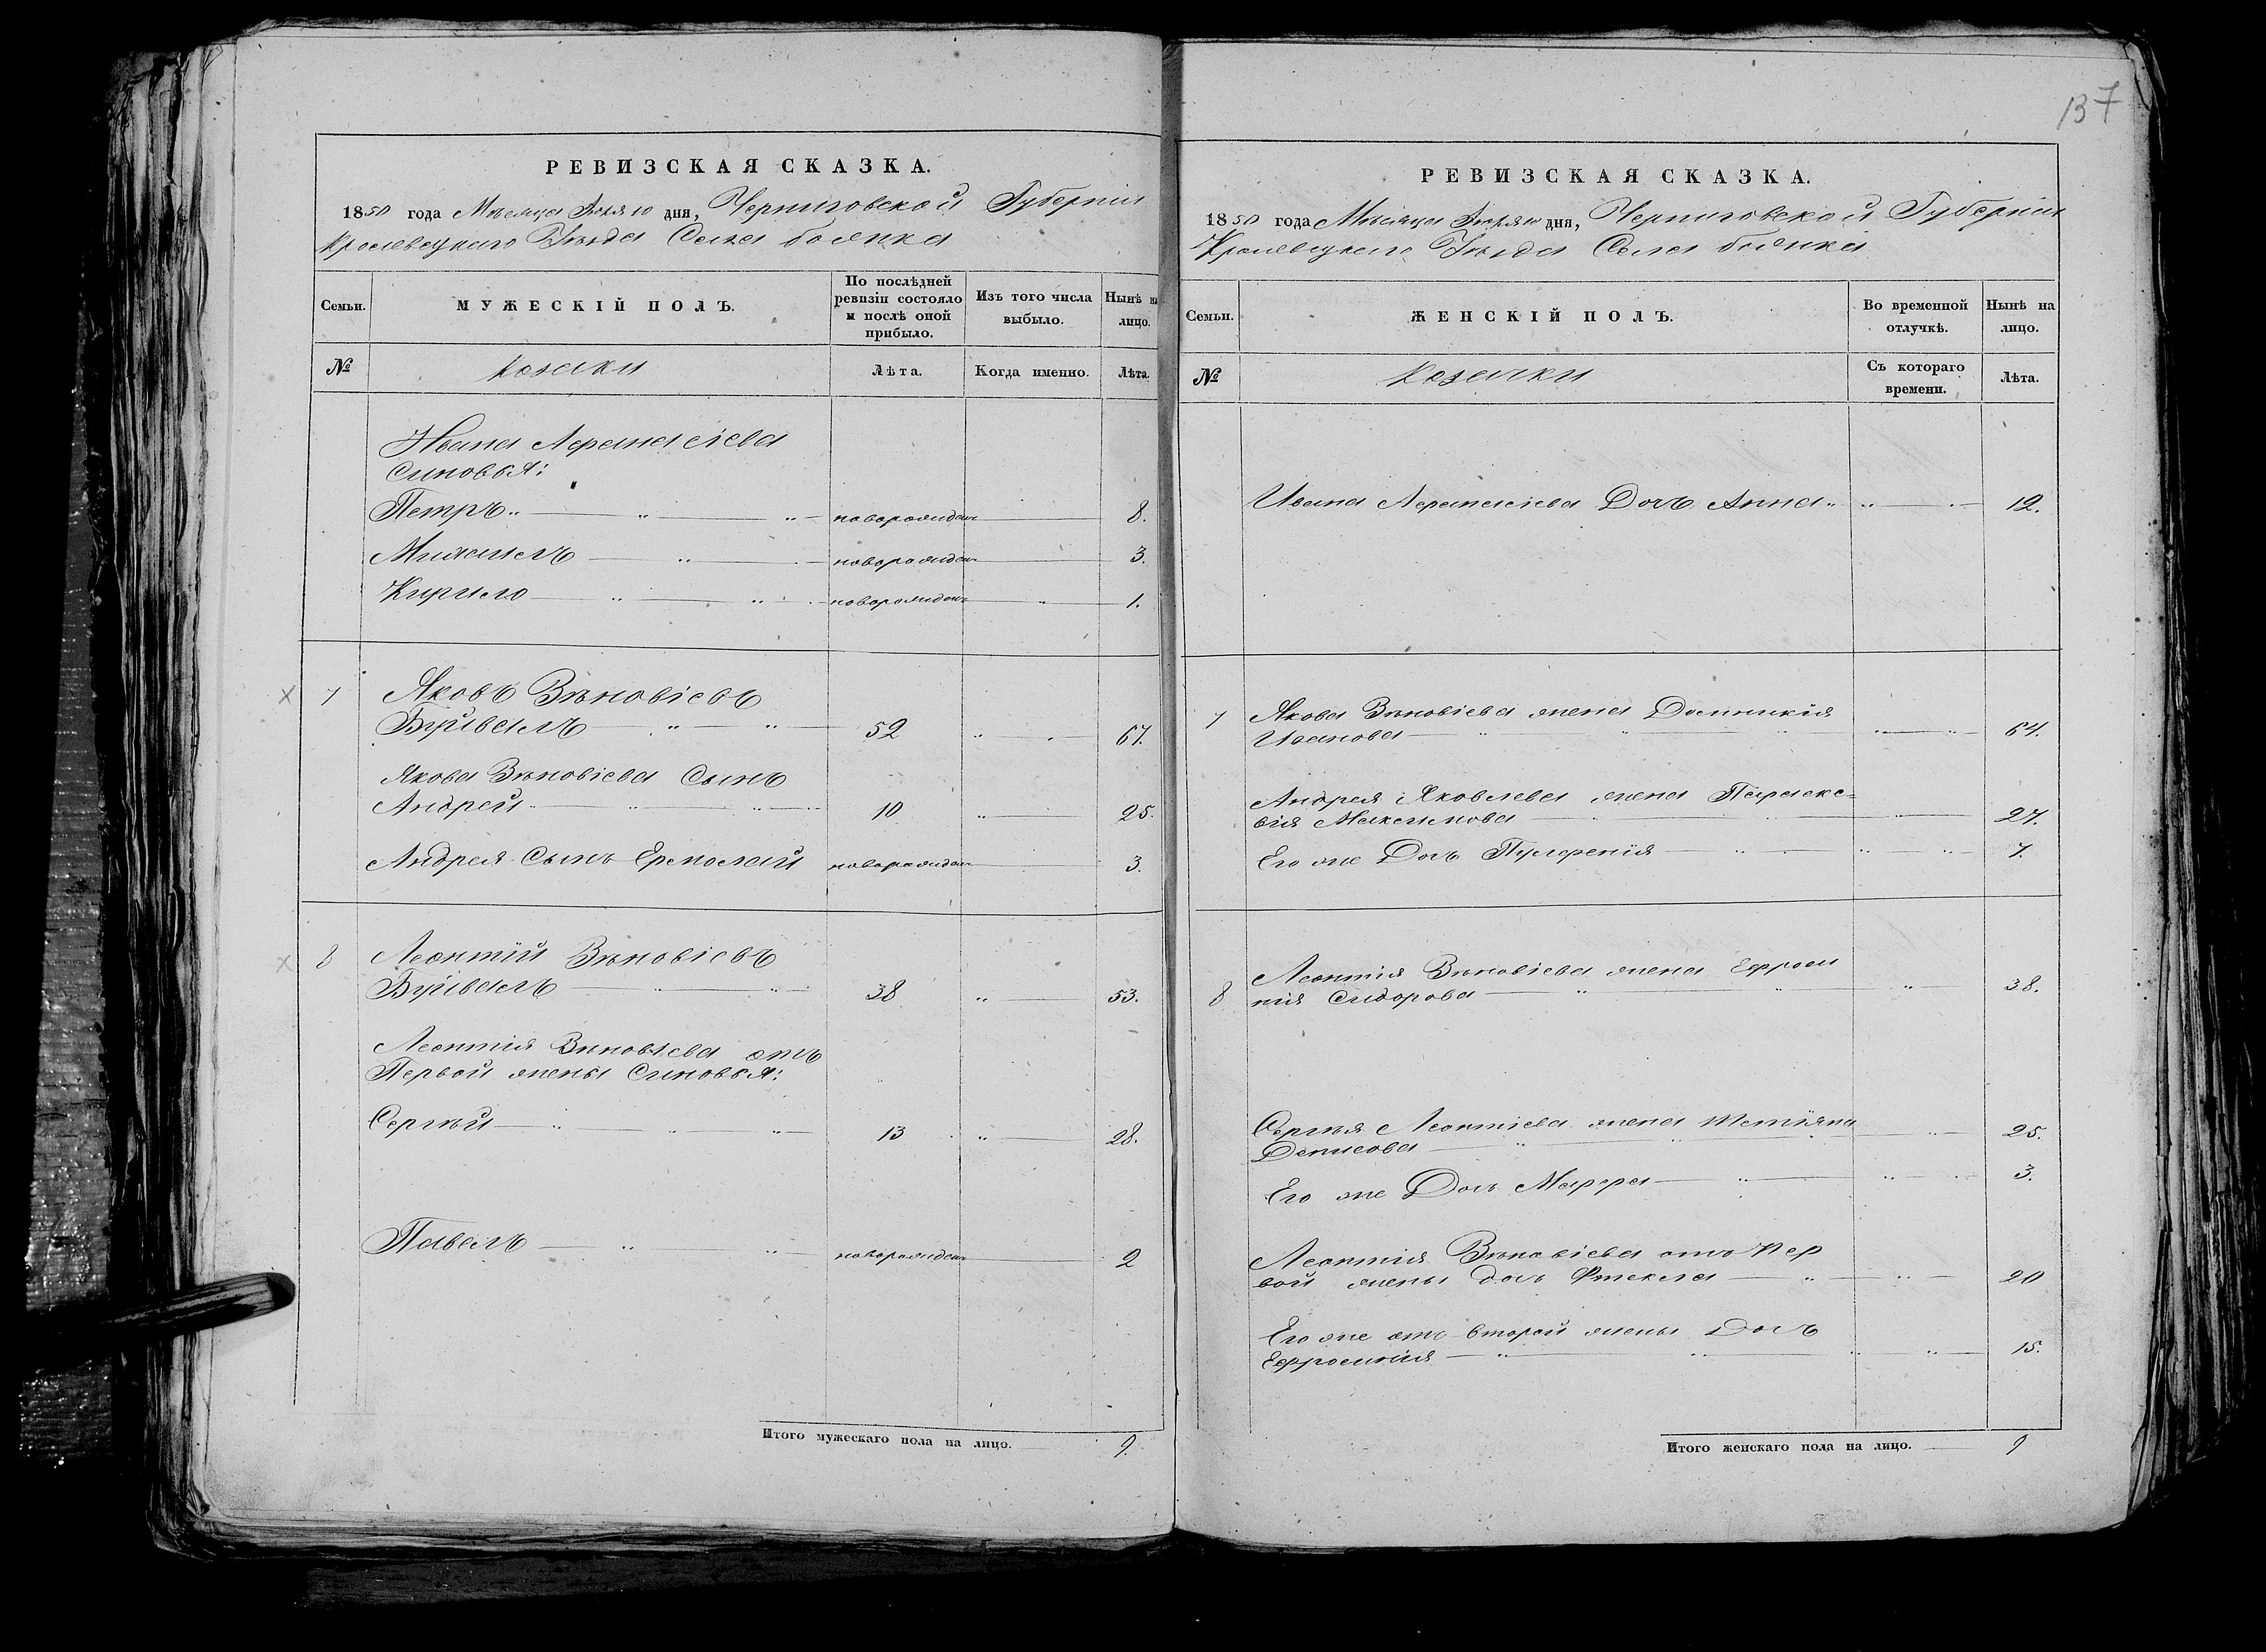 137
РЕВИЗСКАЯ СКАЗКА.
1850 года Месяца Июля 10 дня, Черниговской Губернiи
Кролевецкаго Уѣзда Села
Семьи. МУЖЕСКІЙ ПОЛЪ. По послѣдней ревизіи состояло и послѣ оной прибыло. Изъ того числа выбыло. Нынѣ на лицо.
№ Козаки Лѣта. Когда именно. Лѣта.
Ивана Афанасіева
Синовья:
Петръ новорожден 8.
Михаилъ новорожден 3.
Кирило новорожден 1.
7 Яковъ Зѣновіевъ
Буйвалъ 52 67.
Якова Зѣновіева Сынъ
Андрей 10 25.
Андрея Сынъ Ермолай новорожден 3.
8 Леонтій Зѣновіевъ
Буйвалъ 38 53.
Леонтія Зѣновіева отъ
Первой жены Синовья:
Сергѣй 13 28.
Павелъ новорожден 2
Итого мужескаго пола на лицо. 9.
РЕВИЗСКАЯ СКАЗКА.
1850 года Мѣсяца Июля 10 дня, Черниговской Губерніи
Кролевецкаго Уѣзда Села
Семьи. ЖЕНСКІЙ ПОЛЪ. Во временной отлучкѣ. Нынѣ на лицо.
№ Козачки Съ котораго времени. Лѣта.
Ивана Афанасіева Дочь Анна 12.
7 Якова Зѣновіева жена Домникія
Иванова 64.
Андрея Яковлева жена Параске=
вія Максимова 27.
Его же Дочь Пулхренія 7.
Леонтія Зѣновіева жена Ефроси
8 нія Сидорова 38.
Сергѣя Леонтіева жена Тетіяна
Денисова 25.
Его же Дочь Марфа 3.
Леонтія Зѣновіева отъ пер
вой жены дочь Фтекла 20
Его же отъ второй жены Дочь
Ефросинія 15.
Итого женскаго пола на лицо. 9